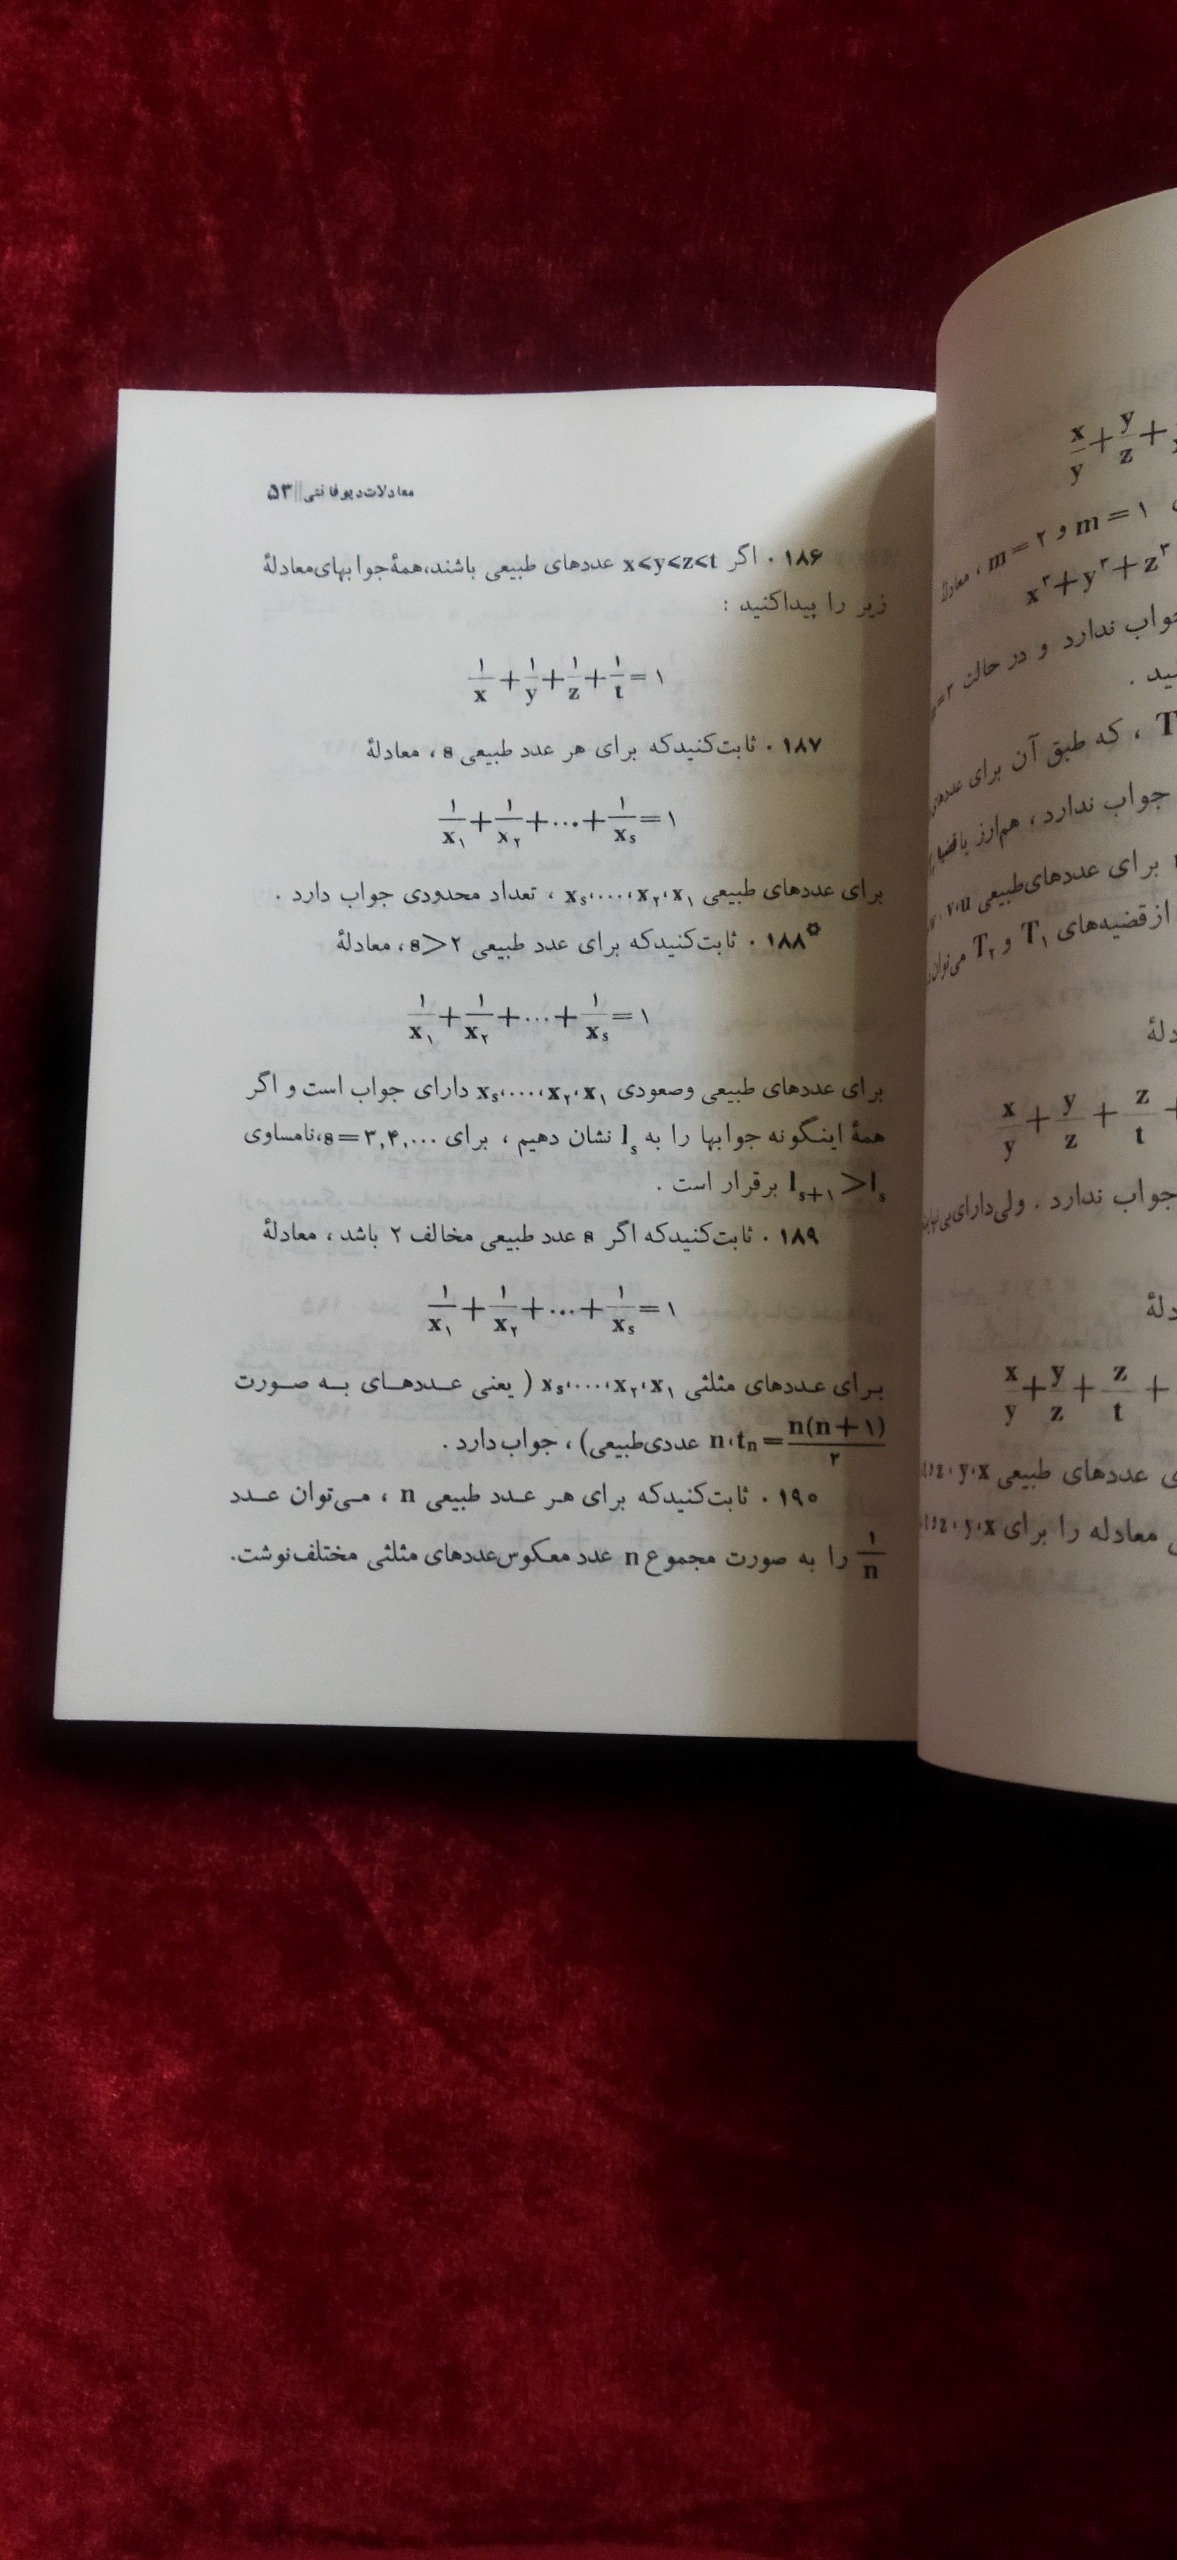 معادلات دیوفانتی || ۵۳
۱۸۶ . اگر x<y<z<t عددهای طبیعی باشند، همهٔ جوابهای معادلهٔ
زیر را پیدا کنید :
۱/x + ۱/y + ۱/z + ۱/t = ۱
۱۸۷ . ثابت کنید که برای هر عدد طبیعی s ، معادلهٔ
۱/x₁ + ۱/x₂ + ... + ۱/xₛ = ۱
برای عددهای طبیعی x₁، x₂، ...، xₛ ، تعداد محدودی جواب دارد .
۱۸۸* . ثابت کنید که برای عدد طبیعی s>۲ ، معادلهٔ
۱/x₁ + ۱/x₂ + ... + ۱/xₛ = ۱
برای عددهای طبیعی وصعودی x₁، x₂، ...، xₛ دارای جواب است و اگر
همهٔ اینگونه جوابها را به lₛ نشان دهیم ، برای s=۳,۴,...، نامساوی
lₛ₊₁ > lₛ برقرار است .
۱۸۹ . ثابت کنید که اگر s عدد طبیعی مخالف ۲ باشد ، معادلهٔ
۱/x₁ + ۱/x₂ + ... + ۱/xₛ = ۱
برای عددهای مثلثی x₁، x₂، ...، xₛ ( یعنی عددهای به صورت
tₙ = n(n+۱)/۲ ، n عددی طبیعی) ، جواب دارد .
۱۹۰ . ثابت کنید که برای هر عدد طبیعی n ، می‌توان عدد
۱/n را به صورت مجموع n عدد معکوس عددهای مثلثی مختلف نوشت.
x/y + y/z +
m=۱ و m=۲ ، معادلهٔ
x³+y³+z³
جواب ندارد و در حالت
T ، که طبق آن برای عددهای
جواب ندارد ، هم‌ارز با
برای عددهای طبیعی
از قضیه‌های T₁ و T₂ می‌توان
x/y + y/z + z/t +
جواب ندارد . ولی دارای
x/y + y/z + z/t +
عددهای طبیعی x، y، z
معادله را برای x، y، z